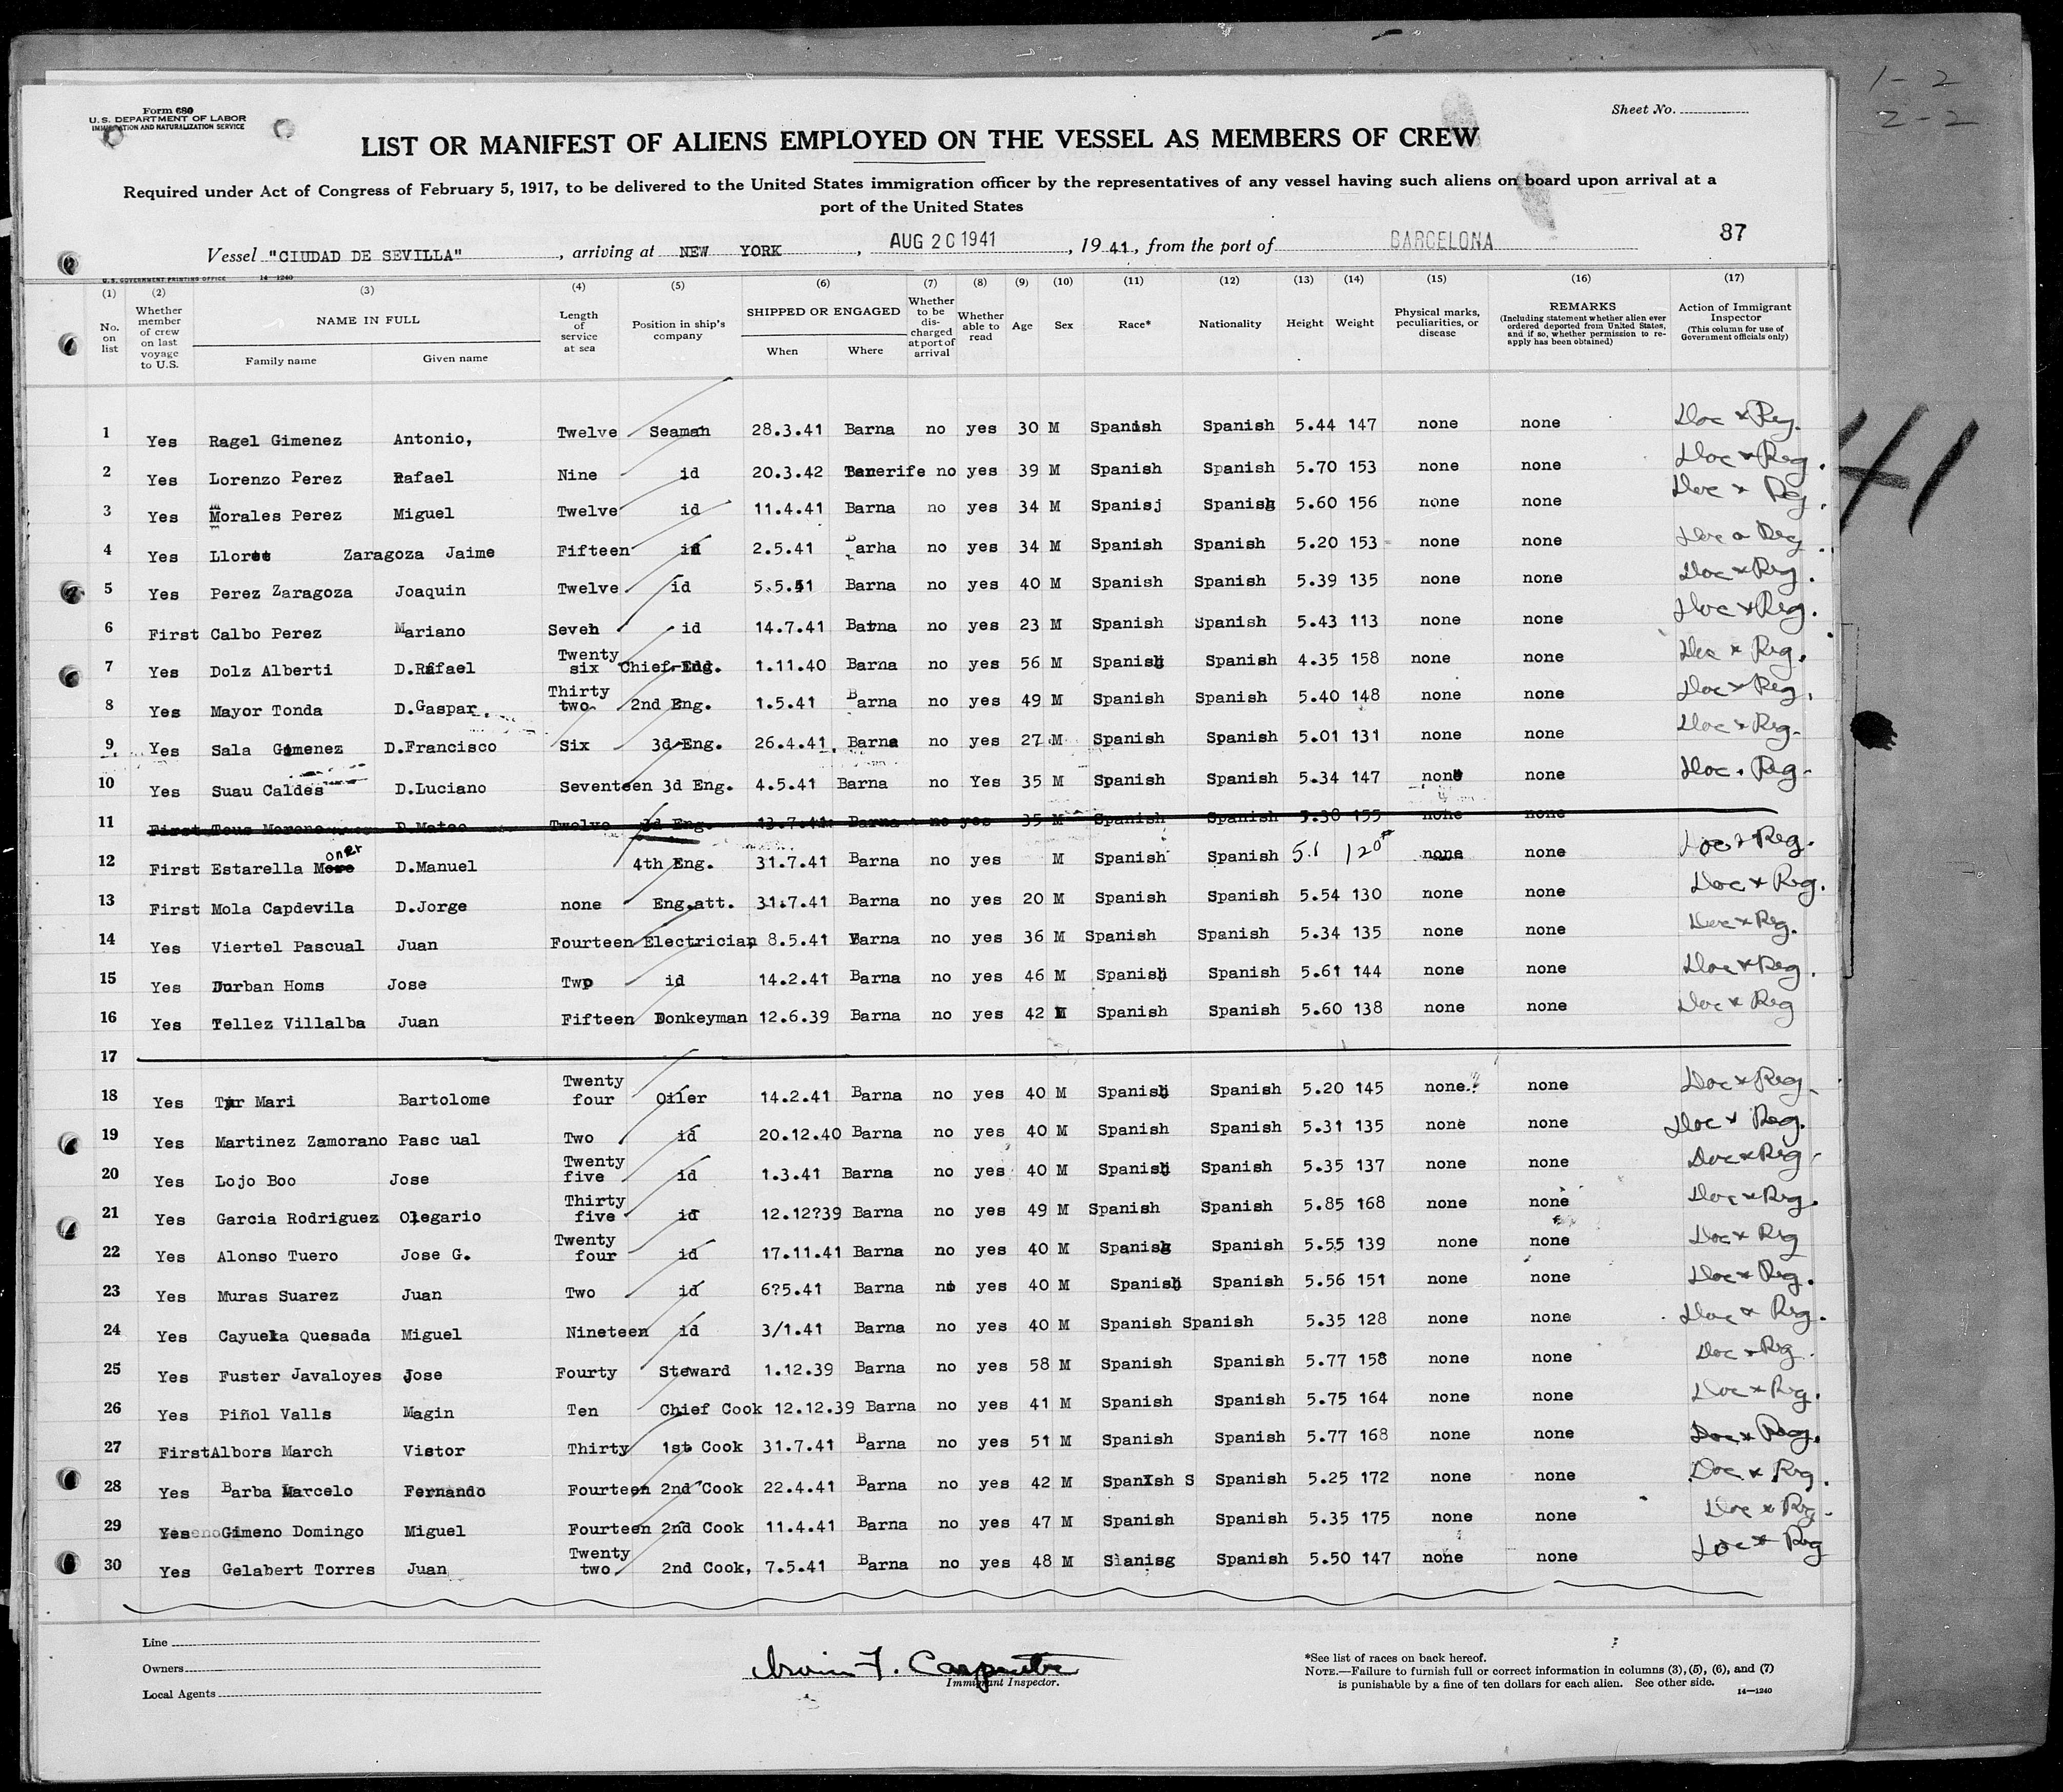 1 - 2
2 - 2
41
Form 680
U. S. DEPARTMENT OF LABOR
IMMIGRATION AND NATURALIZATION SERVICE
Sheet No.
LIST OR MANIFEST OF ALIENS EMPLOYED ON THE VESSEL AS MEMBERS OF CREW
Required under Act of Congress of February 5, 1917, to be delivered to the United States immigration officer by the representatives of any vessel having such aliens on board upon arrival at a
port of the United States
87
Vessel "CIUDAD DE SEVILLA" , arriving at NEW YORK , AUG 20 1941 , 19 41, from the port of BARCELONA
U. S. GOVERNMENT PRINTING OFFICE 14—1240
(1) (2) (3) (4) (5) (6) (7) (8) (9) (10) (11) (12) (13) (14) (15) (16) (17)
No. on list
Whether member of crew on last voyage to U.S.
NAME IN FULL
Family name Given name
Length of service at sea
Position in ship's company
SHIPPED OR ENGAGED
When Where
Whether to be discharged at port of arrival
Whether able to read
Age
Sex
Race*
Nationality
Height
Weight
Physical marks, peculiarities, or disease
REMARKS
(Including statement whether alien ever ordered deported from United States, and if so, whether permission to reapply has been obtained)
Action of Immigrant Inspector
(This column for use of Government officials only)
1 Yes Ragel Gimenez Antonio, Twelve Seaman 28.3.41 Barna no yes 30 M Spanish Spanish 5.44 147 none none Doc & Reg.
2 Yes Lorenzo Perez Rafael Nine id 20.3.42 Tenerife no yes 39 M Spanish Spanish 5.70 153 none none Doc & Reg.
3 Yes Morales Perez Miguel Twelve id 11.4.41 Barna no yes 34 M Spanisj Spanish 5.60 156 none none Doc & Reg.
4 Yes Lloret Zaragoza Jaime Fifteen id 2.5.41 Barha no yes 34 M Spanish Spanish 5.20 153 none none Doc & Reg.
5 Yes Perez Zaragoza Joaquin Twelve id 5.5.41 Barna no yes 40 M Spanish Spanish 5.39 135 none none Doc & Reg.
6 First Calbo Perez Mariano Seven id 14.7.41 Barna no yes 23 M Spanish Spanish 5.43 113 none none Doc & Reg.
7 Yes Dolz Alberti D.Rafael Twenty six Chief Eng. 1.11.40 Barna no yes 56 M Spanish Spanish 4.35 158 none none Doc & Reg.
8 Yes Mayor Tonda D.Gaspar. Thirty two 2nd Eng. 1.5.41 Barna no yes 49 M Spanish Spanish 5.40 148 none none Doc & Reg.
9 Yes Sala Gimenez D.Francisco Six 3d Eng. 26.4.41. Barna no yes 27 M Spanish Spanish 5.01 131 none none Doc & Reg.
10 Yes Suau Caldes D.Luciano Seventeen 3d Eng. 4.5.41 Barna no Yes 35 M Spanish Spanish 5.34 147 none none Doc & Reg.
11 First Tous Moreno D.Mateo Twelve 3d Eng. 13.7.41 Barna no yes 35 M Spanish Spanish 5.38 155 none none
12 First Estarella Moner D.Manuel 4th Eng. 31.7.41 Barna no yes M Spanish Spanish 5.1 120# none none Doc & Reg.
13 First Mola Capdevila D.Jorge none Eng.att. 31.7.41 Barna no yes 20 M Spanish Spanish 5.54 130 none none Doc & Reg.
14 Yes Viertel Pascual Juan Fourteen Electrician 8.5.41 Barna no yes 36 M Spanish Spanish 5.34 135 none none Doc & Reg.
15 Yes Durban Homs Jose Two id 14.2.41 Barna no yes 46 M Spanish Spanish 5.61 144 none none Doc & Reg.
16 Yes Tellez Villalba Juan Fifteen Donkeyman 12.6.39 Barna no yes 42 M Spanish Spanish 5.60 138 none none Doc & Reg
17
18 Yes Tur Mari Bartolome Twenty four Oiler 14.2.41 Barna no yes 40 M Spanish Spanish 5.20 145 none. none Doc & Reg.
19 Yes Martinez Zamorano Pasc ual Two id 20.12.40 Barna no yes 40 M Spanish Spanish 5.31 135 none none Doc & Reg.
20 Yes Lojo Boo Jose Twenty five id 1.3.41 Barna no yes 40 M Spanish Spanish 5.35 137 none none Doc & Reg
21 Yes Garcia Rodriguez Olegario Thirty five id 12.12?39 Barna no yes 49 M Spanish Spanish 5.85 168 none none Doc & Reg.
22 Yes Alonso Tuero Jose G. Twenty four id 17.11.41 Barna no yes 40 M Spanish Spanish 5.55 139 none none Doc & Reg
23 Yes Muras Suarez Juan Two id 6?5.41 Barna no yes 40 M Spanish Spanish 5.56 151 none none Doc & Reg.
24 Yes Cayuela Quesada Miguel Nineteen id 3/1.41 Barna no yes 40 M Spanish Spanish 5.35 128 none none Doc & Reg.
25 Yes Fuster Javaloyes Jose Fourty Steward 1.12.39 Barna no yes 58 M Spanish Spanish 5.77 158 none none Doc & Reg.
26 Yes Piñol Valls Magin Ten Chief Cook 12.12.39 Barna no yes 41 M Spanish Spanish 5.75 164 none none Doc & Reg.
27 First Albors March Vistor Thirty 1st Cook 31.7.41 Barna no yes 51 M Spanish Spanish 5.77 168 none none Doc & Reg.
28 Yes Barba Marcelo Fernando Fourteen 2nd Cook 22.4.41 Barna no yes 42 M SpanIsh S Spanish 5.25 172 none none Doc & Reg.
29 Yes Gimeno Domingo Miguel Fourteen 2nd Cook 11.4.41 Barna no yes 47 M Spanish Spanish 5.35 175 none none Doc & Reg.
30 Yes Gelabert Torres Juan Twenty two 2nd Cook, 7.5.41 Barna no yes 48 M Slanisg Spanish 5.50 147 none none Doc & Reg
Line
Owners
Local Agents
Irwin F. Carpenter
Immigrant Inspector.
*See list of races on back hereof.
NOTE.—Failure to furnish full or correct information in columns (3), (5), (6), and (7)
is punishable by a fine of ten dollars for each alien. See other side.
14—1240